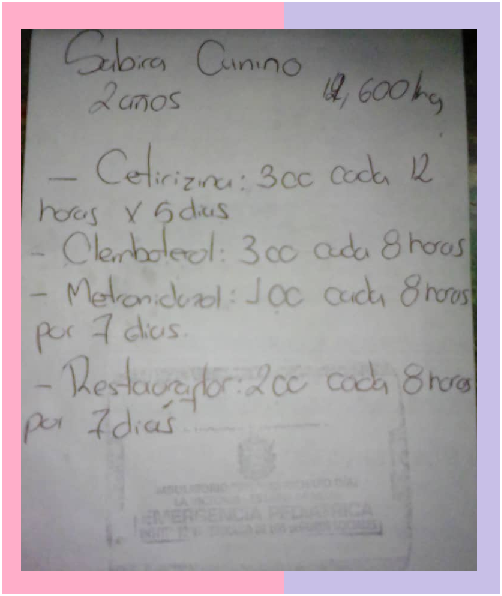 Sabira Canino
2 años 12,600 kg
- Cetirizina: 3cc cada 12
horas x 5 dias
- Clenbuterol: 3cc cada 8 horas
- Metronidazol: 10c cada 8 horas
por 7 dias.
- Restaurador: 2cc cada 8 horas
por 7 dias
EMERGENCIA PEDIATRICA